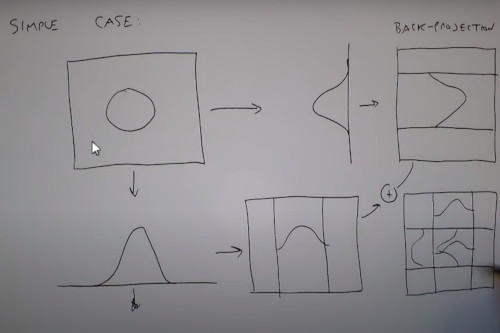 SIMPLE CASE:
BACK-PROJECTION
+